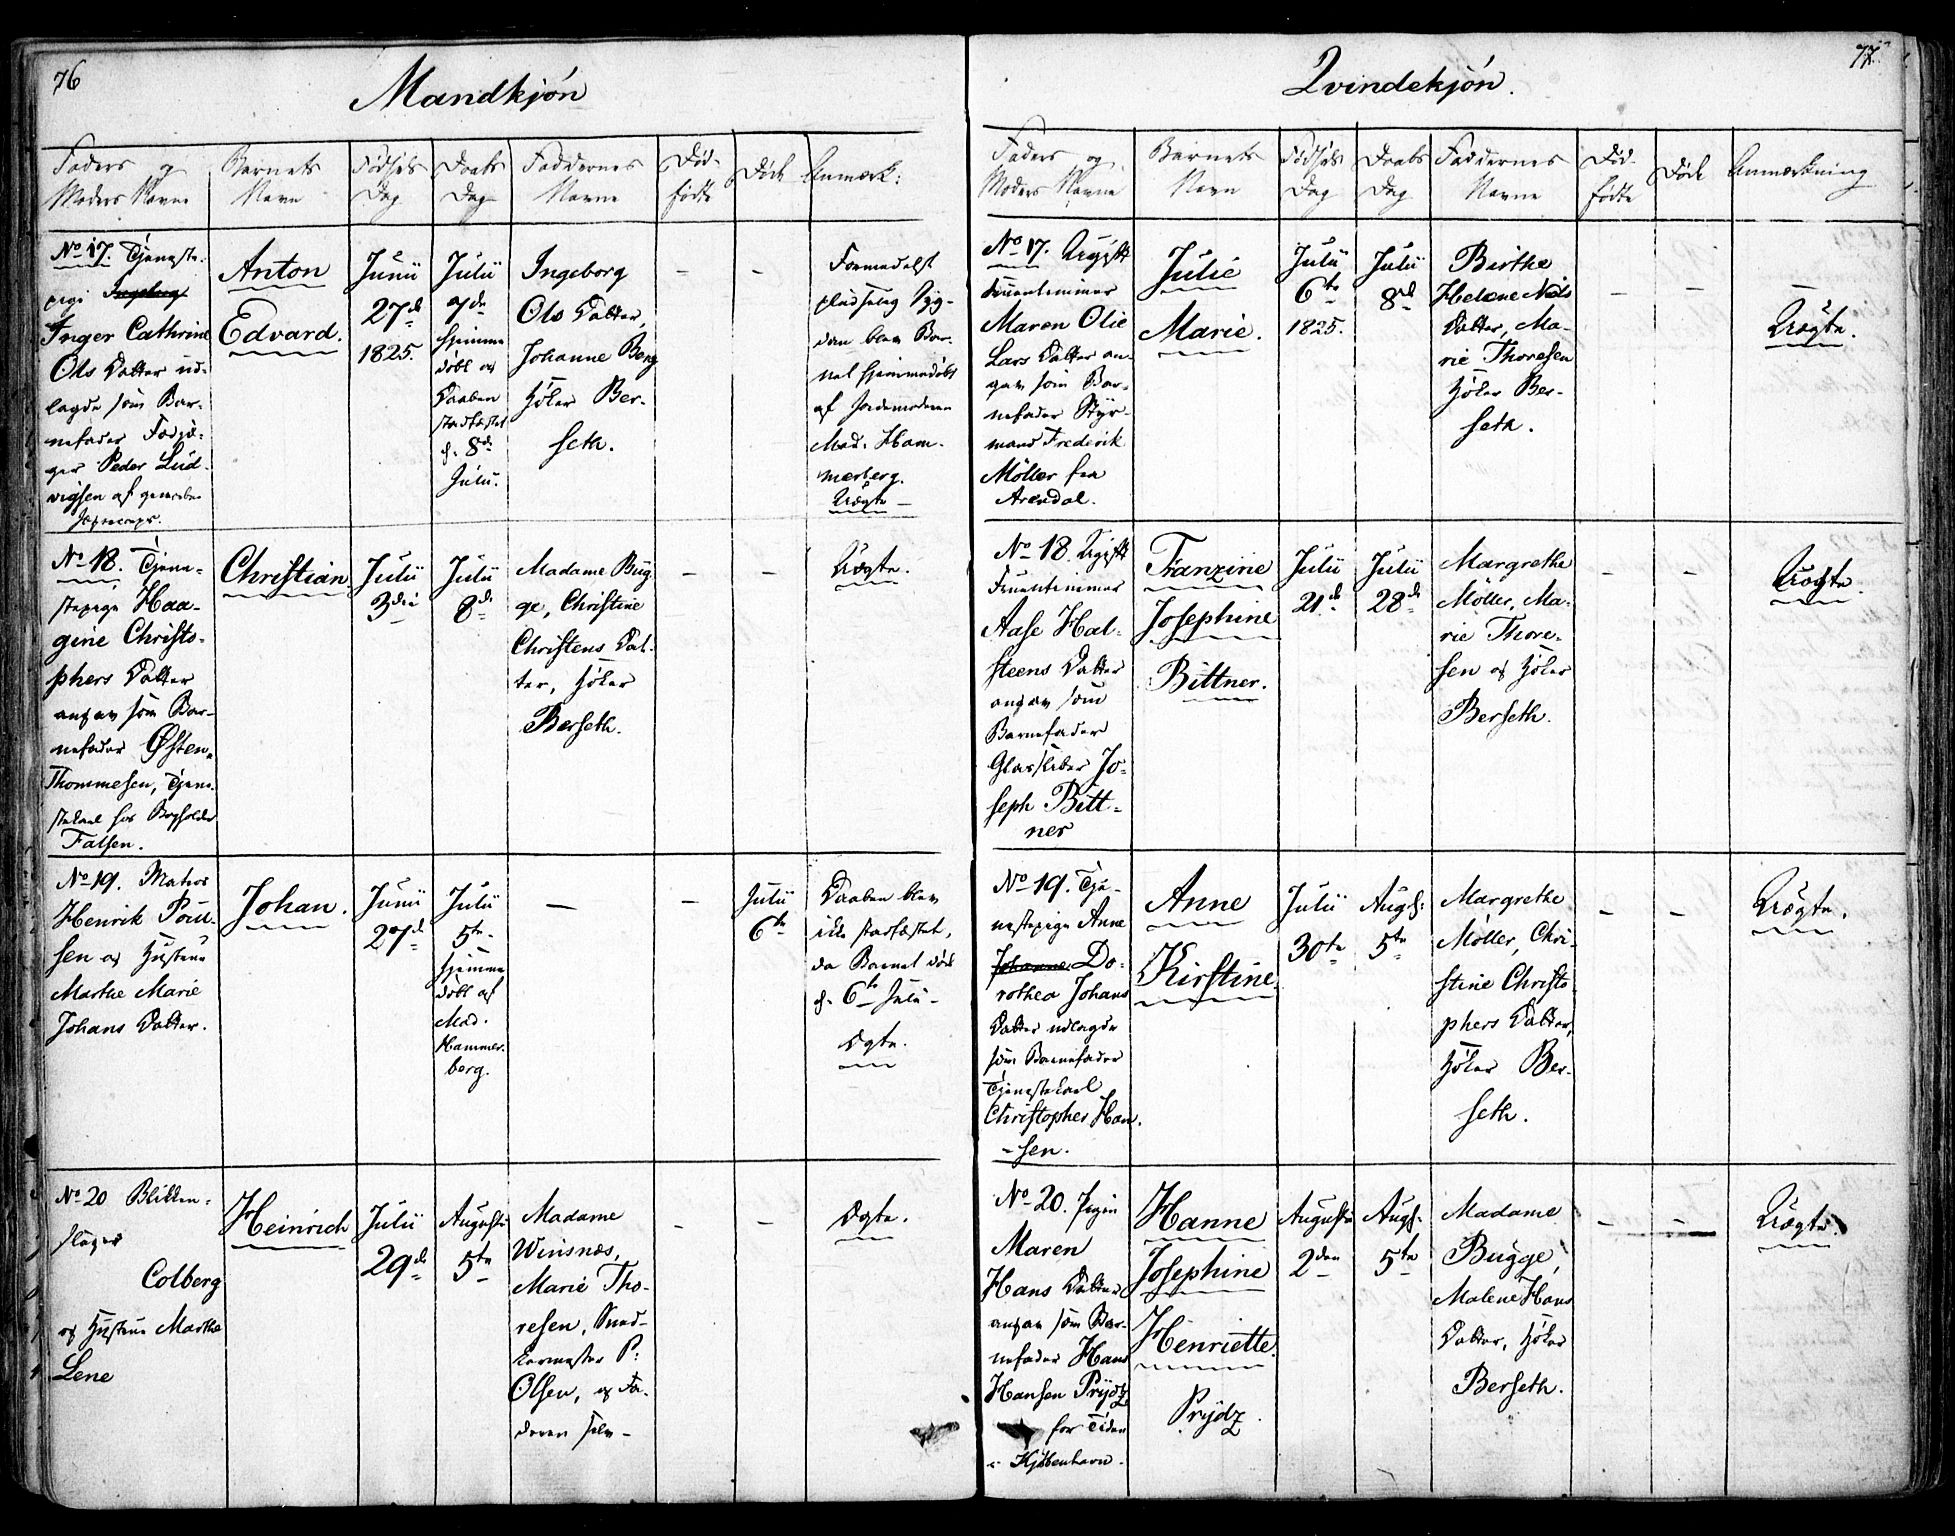 76
Mandkjøn
Faders og
Moders Navne
Barnets
Navn
Fødsels
Dag
Daabs
Dag
Faddernes
Navne
Død-
fødte
Døde
Anmærk:
No 17. Tjeneste-
pige Ingeborg
Inger Cathrine
Ols Datter ud-
lagde som Bar-
nefader
Peder Lud-
vigsen af
Anton
Edvard.
Junii
27de
1825.
Julii
7de
hjemme
døbt og
Daaben
stadfæstet
d. 8de
Julii.
Ingeborg
Ols Datter,
Johanne Berg
Høker Ber-
seth.
–
–
Formedelst
pludselig Syg-
dom blev Bar-
net hjemmedøbt
af Jordemoderen
Mad. Ham-
merberg.
Uægte –
No 18. Tjene-
stepige Haa-
gine Christo-
phers Datter
angav som Bar-
nefader Østen
Thommesen, Tjene-
stekarl hos Bogholder
Falsen.
Christian.
Julii
3die
Julii
8de
Madame Bug-
ge, Christine
Christens Dat-
ter, Høker
Berseth.
–
–
Uægte.
No 19. Matros
Henrik Poul-
sen og Hustrue
Marthe Marie
Johans Datter.
Johan.
Junii
27de
Julii
5te
hjemme
døbt af
Mad.
Hammer-
berg.
–
–
Julii
6te
Daaben blev
ikke stadfæstet,
da Barnet døde
d. 6te Juli –
Ægte.
No 20 Blikken-
slager
Colberg
og Hustrue Marthe
Lene
Heinrich
Julii
29de
Augusti
5te
Madame
Winsnæs,
Marie Tho-
resen, Sned-
kermester P:
Olsen, og Fa-
deren selv –
–
–
Ægte.
77
Qvindekjøn.
Faders og
Moders Navne
Barnets
Navn
Fødsels
Dag
Daabs
Dag
Faddernes
Navne
Død-
fødte
Døde
Anmærkning
No 17. Ugift
Fruentimmer
Maren Olie
Lars Datter an-
gav som Bar-
nefader Styr-
mand Frederik
Møller fra
Arendal.
Julie
Marie.
Julii
6te
1825.
Julii
8de
Birthe
Helene Niels
Datter, Ma-
rie Thoresen
Høker Ber-
seth.
–
–
–
Uægte.
No 18 Ugift
Fruentimmer
Aase Hal-
steens Datter
angav som
Barnefader
Glassliber Jo-
seph Bitt-
ner
Franzine
Josephine
Bittner.
Julii
21de
Julii
28de
Margrethe
Møller, Ma-
rie Thore-
sen og Høker
Berseth.
–
–
Uægte.
No 19. Tje-
nestepige Anne
Johanne Do-
rothea Johans
Datter udlagde
som Barnefader
Tjenestekarl
Christopher Han-
-sen.
Anne
Kirstine.
Julii
30te
Augs:
5te
Margrethe
Møller, Chri-
stine Christo-
phers Datter,
Høker Ber-
seth.
–
–
Uægte.
No 20. Pigen
Maren
Hans Datter
angav som Bar-
nefader Hans
Hansen Prydz
for Tiden
i Kjøbenhavn.
Hanne
Josephine
Henriette.
Prydz.
Augusti
2den
Augs:
5te
Madame
Bugge,
Malene Hans
Datter, Høker
Berseth.
–
–
Uægte.